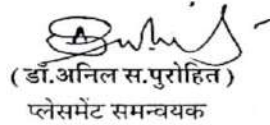 (डॉ.अनिल स.पुरोहित)
प्लेसमेंट समन्वयक